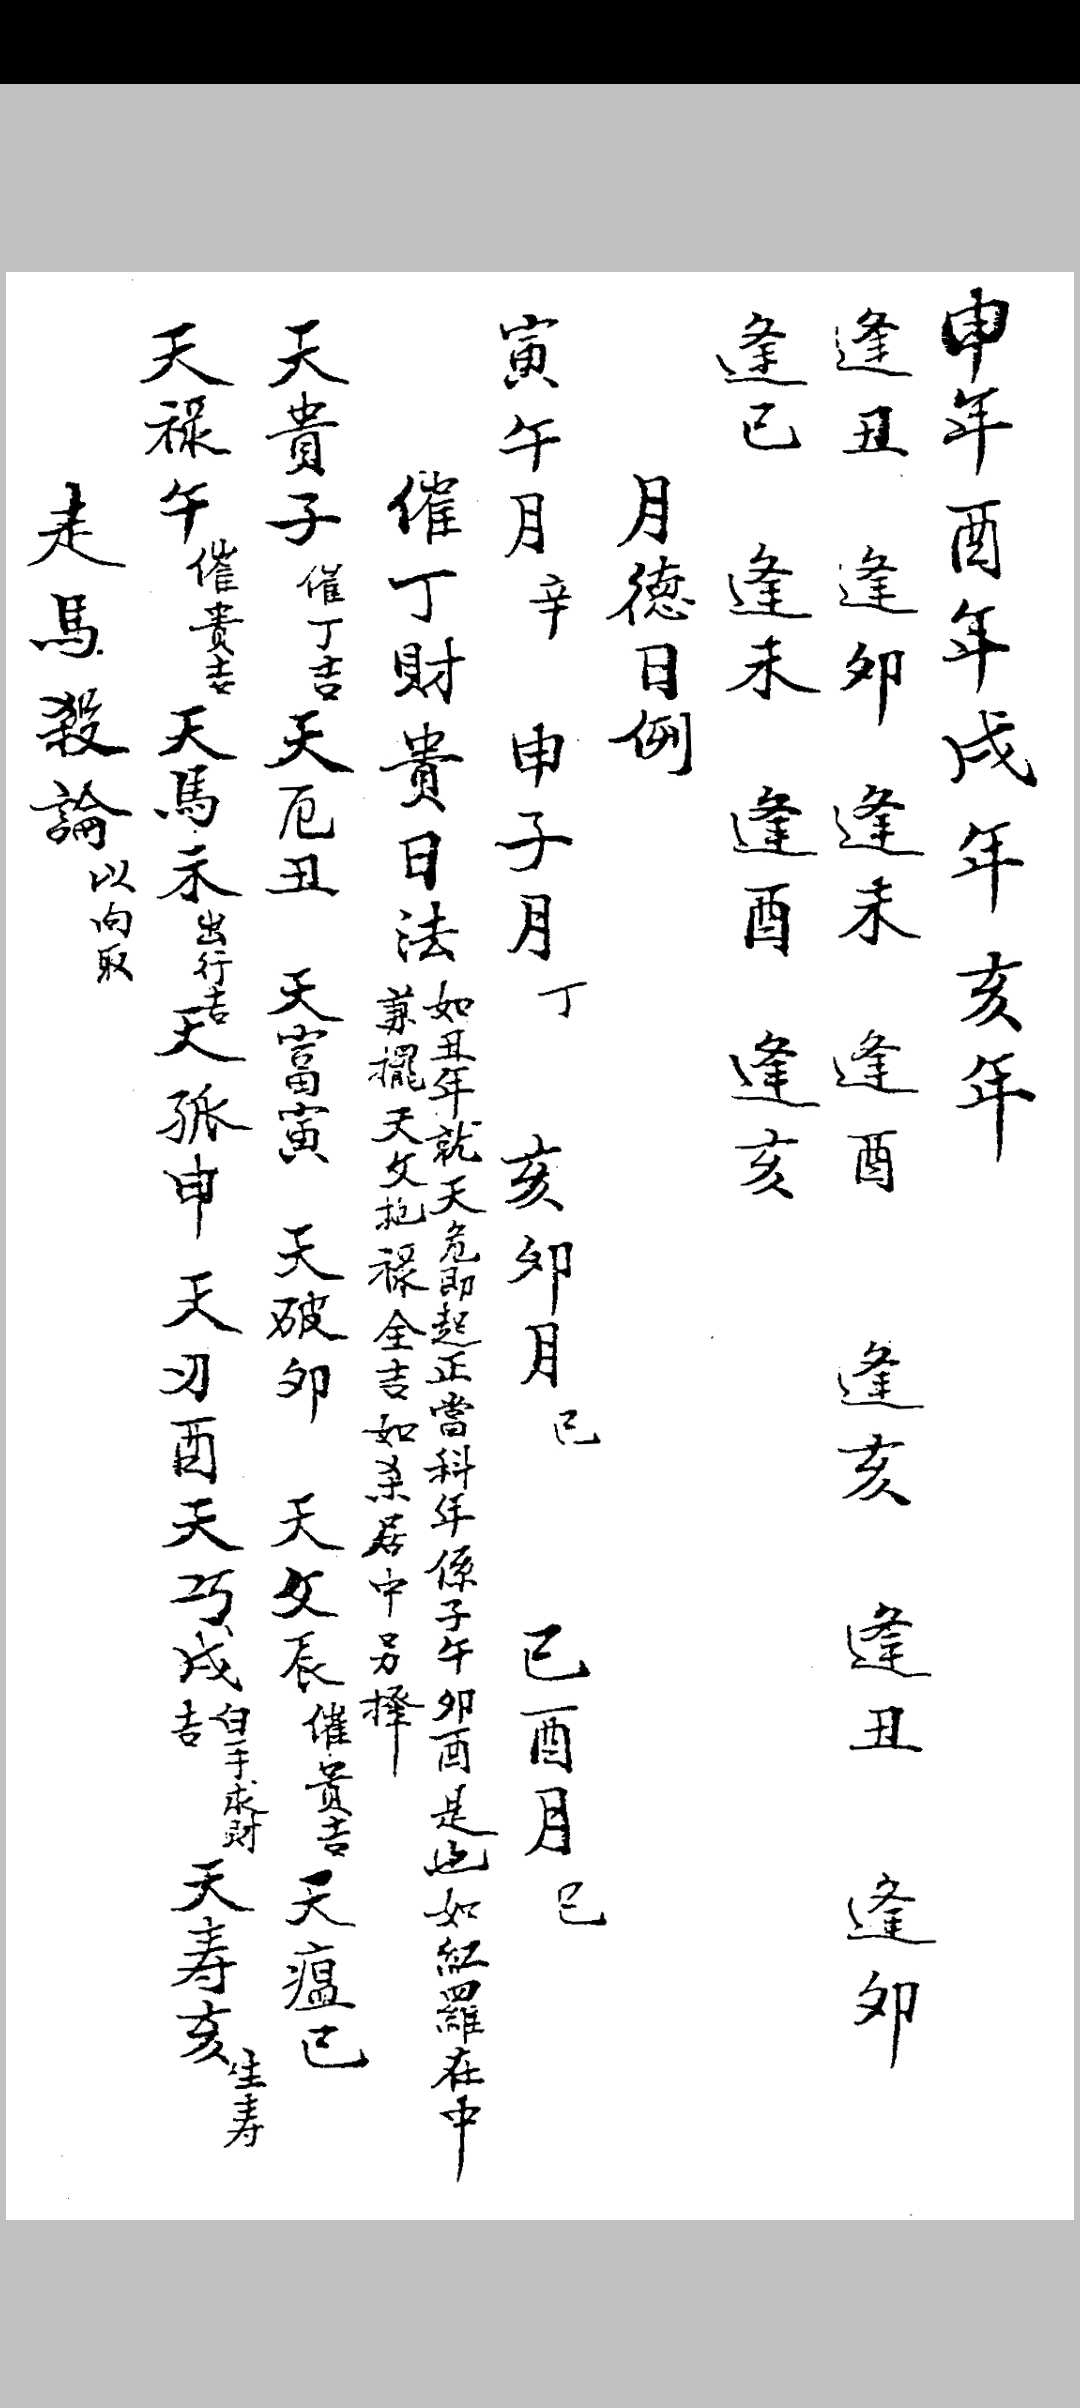 申年酉年戌年亥年
逢丑 逢卯 逢未 逢酉 逢亥 逢丑 逢卯
逢巳 逢未 逢酉 逢亥
月德日例
寅午月辛 申子月丁 亥卯月己 巳酉月已
催丁財貴日法
如丑年就天危即起正當科年係子午卯酉是也如紅羅在中
兼擺天文拖祿全吉如杀居中另擇
天貴子催丁吉天厄丑 天富寅 天破卯 天文辰催貴吉天瘟巳
天祿午催貴吉天馬未出行吉天孤申天刃酉天巧戌白手求財吉天寿亥生寿
走馬殺論以向取